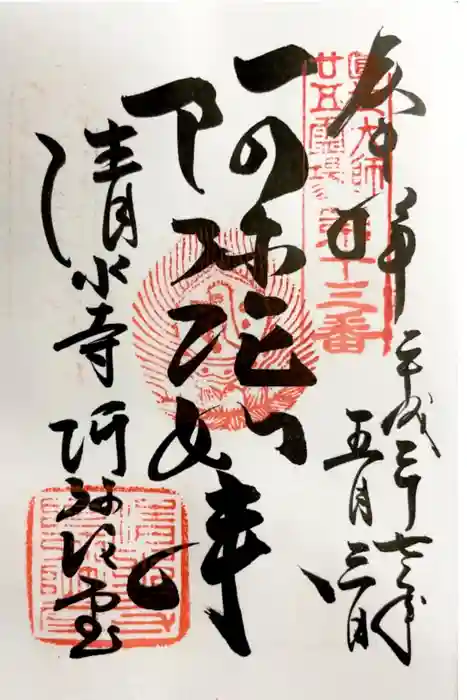 圓光大師
廿五霊場
第十三番
奉拝
平成二十七年
五月三日
阿弥陀如来
清水寺 阿弥陀堂